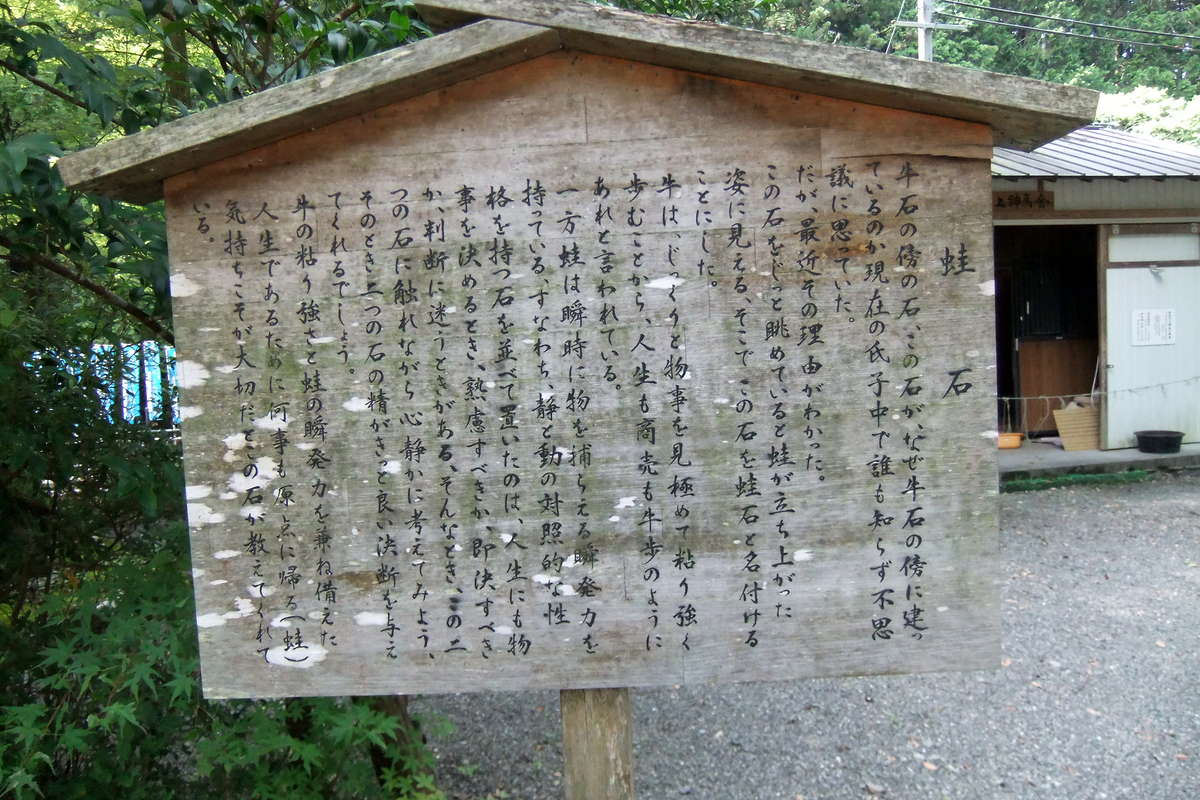 蛙石
牛石の傍の石、この石が、なぜ牛石の傍に建っ
ているのか現在の氏子中で誰も知らず不思
議に思ていた。
だが、最近その理由がわかった。
この石をじっと眺めていると蛙が立ち上がった
姿に見える、そこでこの石を蛙石と名付ける
ことにした。
牛は、じっくりと物事を見極めて粘り強く
歩むことから、人生も商売も牛歩のように
あれと言われている。
一方蛙は瞬時に物を捕らえる瞬発力を
持っている、すなわち、静と動の対照的な性
格を持つ石を並べて置いたのは、人生にも物
事を決めるとき、熟慮すべきか、即決すべき
か、判断に迷うときがある、そんなとき、この二
つの石に触れながら心静かに考えてみよう、
そのとき二つの石の精がきっと良い決断を与え
てくれるでしょう。
牛の粘り強さと蛙の瞬発力を兼ね備えた
人生であるために何事も原点に帰る(蛙)
気持ちこそが大切だとこの石が教えてくれて
いる。